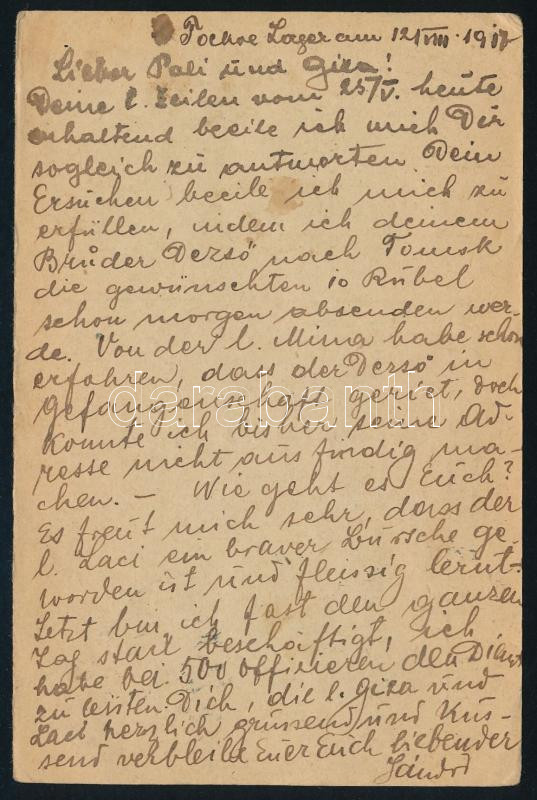 Lager am 12/VIII. 191
Lieber Pali und Giza!
Deine l. Zeilen vom 25/V. heute
erhaltend beeile ich mich Dir
sogleich zu antworten Dein
Ersuchen beeile ich mich zu
erfüllen, indem ich deinem
Bruder Derső nach Tomsk
die gewünschten 10 Rubel
schon morgen absenden wer-
de. Von der l. Mima habe schon
erfahren, dass der Derső in
Gefangenschaft geriet, doch
konnte ich bisher seine Ad-
resse nicht ausfindig ma-
chen. – Wie geht es Euch?
Es freut mich sehr, dass der
l. Laci ein braver Bursche ge-
worden ist und fleissig lernt.
Jetzt bin ich fast den ganzen
Tag stark beschäftigt, ich
habe bei 500 Offizieren den Dienst
zu leisten. Dich, die l. Giza und
Laci herzlich grüssend und küs-
send verbleibe Euer Euch liebender
Sándor
darabanth